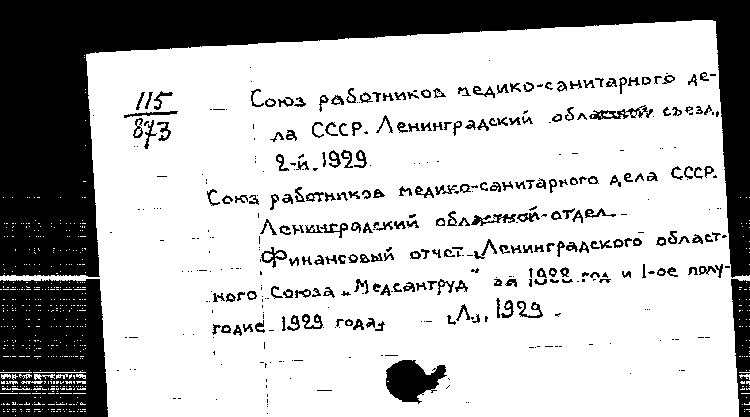 115
873
Союз работников медико-санитарного де-
ла СССР. Ленинградский областной съезд,
2-й. 1929
Союз работников медико-санитарного дела СССР.
Ленинградский областной отдел.
Финансовый отчет Ленинградского област-
ного Союза „Медсантруд" за 1928 год и 1-ое полу-
годие 1929 года,
Л., 1929.